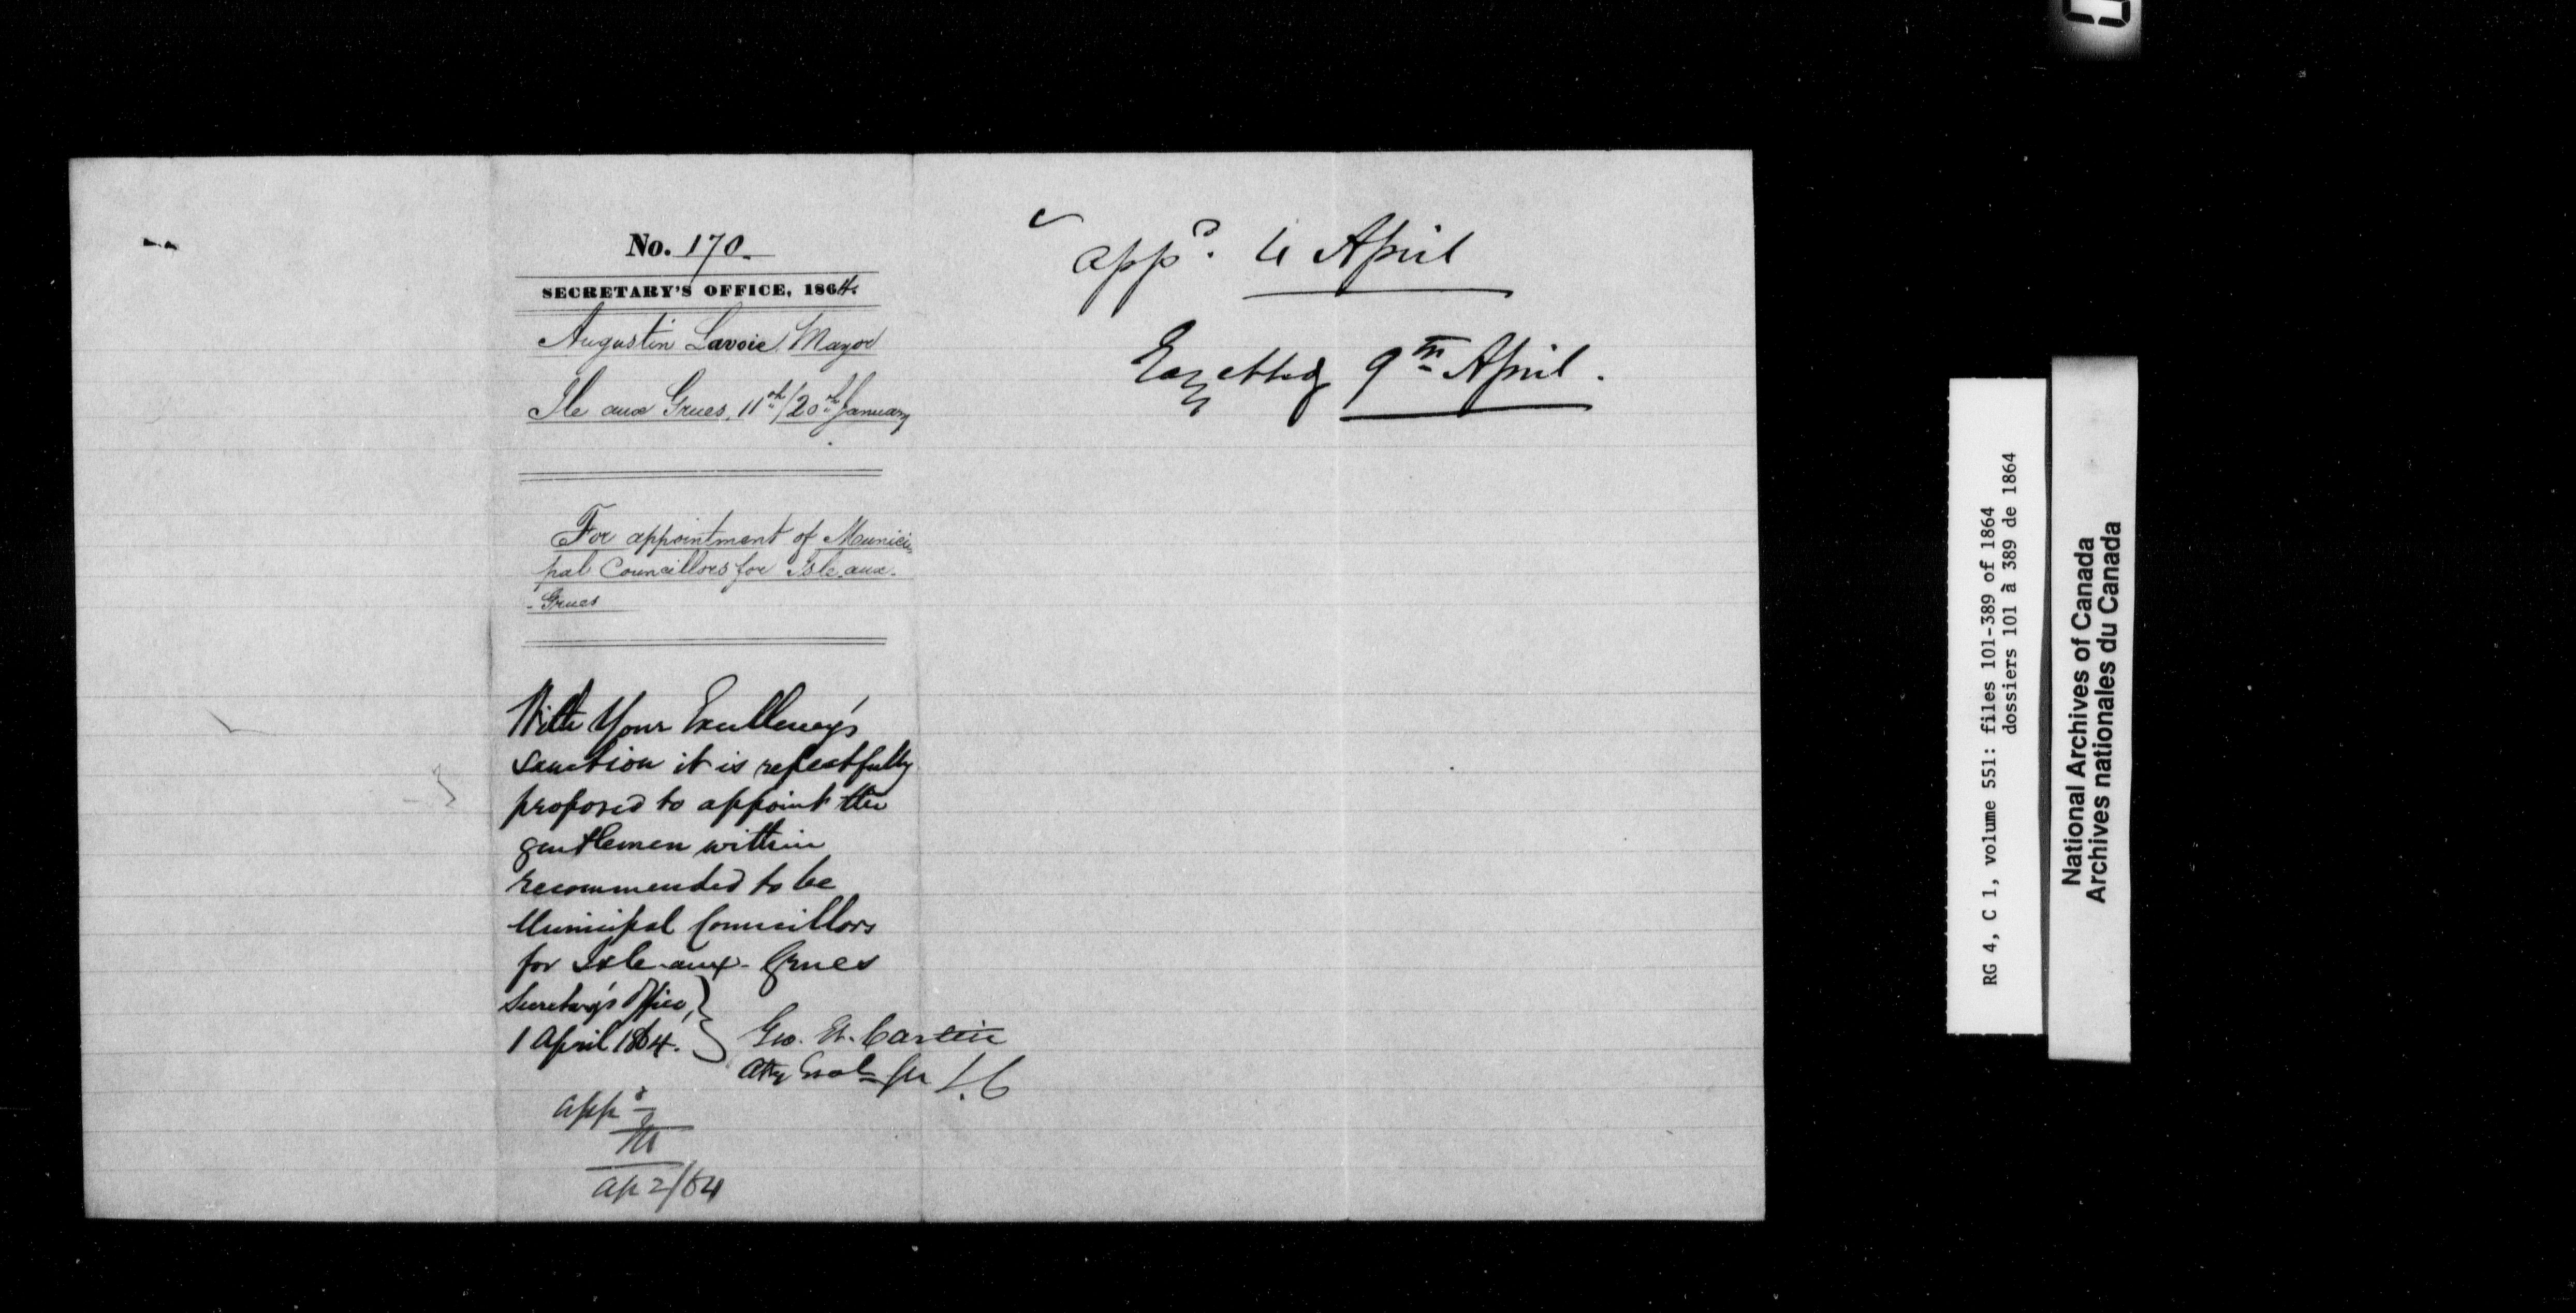 No. 170.
SECRETARY'S OFFICE, 1864.
Augustin Lavoie, Mayor
Ile aux Grues, 11th/20th January
For appointment of Munici-
pal Councillors for Isle aux-
-Grues
With Your Excellency's
sanction it is respectfully
proposed to appoint the
gentlemen within
recommended to be
Municipal Councillors
for Isle-aux-Grues
Secretary's Office,
1 April 1864.
Geo. Et. Cartier
Atty Genl for L.C
appd
M
Ap 2/64
appd. 4 April
Gazetted 9th April.
RG 4, C 1, volume 551: files 101-389 of 1864
dossiers 101 à 389 de 1864
National Archives of Canada
Archives nationales du Canada